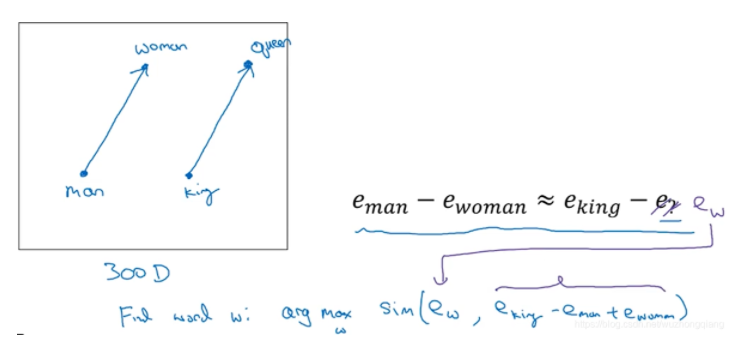 woman queen
man king
e_man − e_woman ≈ e_king − e_? e_w
300 D
Find word w: arg max_w sim(e_w, e_king - e_man + e_woman)